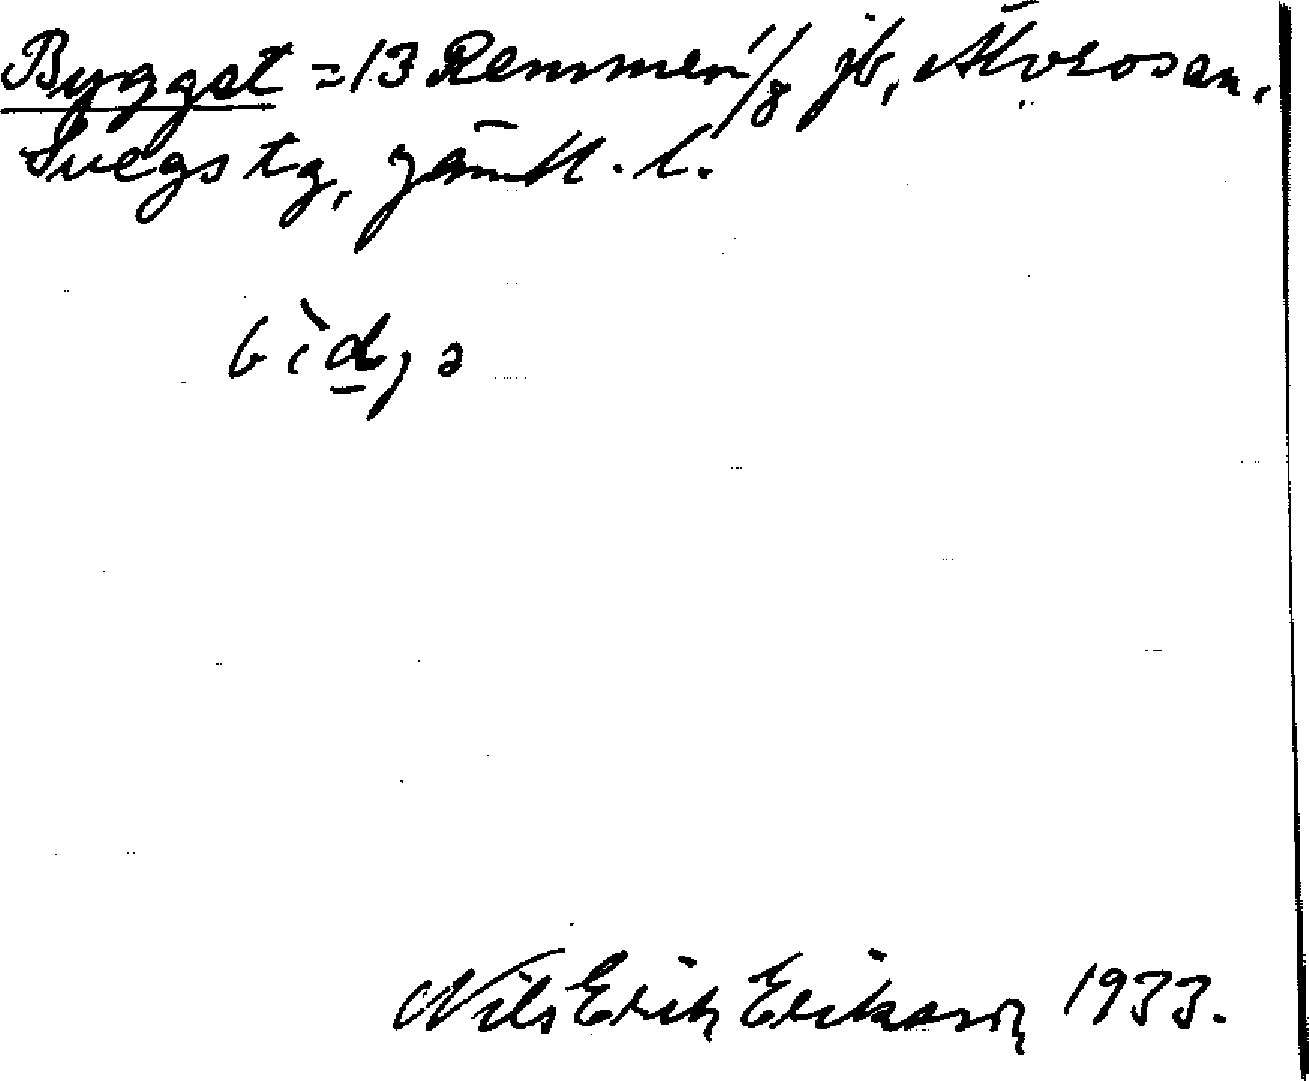 Bygget = 13 Remmen 1/8 jb, Älvrosen,
Svegs tg, Jämtl. l.
bìd̲ȷə
Nils Erik Erikson 1933.